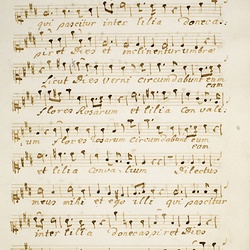 qui pascitur inter lilia donec as
piret Dies et inclinentur umbræ
Sicut Dies verni circumdabunt eum
eam
flores Rosarum et lilia Convali
um flores Rosarum circumdabunt eum
eam
et lilia Convalium Dilectus
meus mihi et ego illi qui pascitur
inter lilia donec aspiret Dies